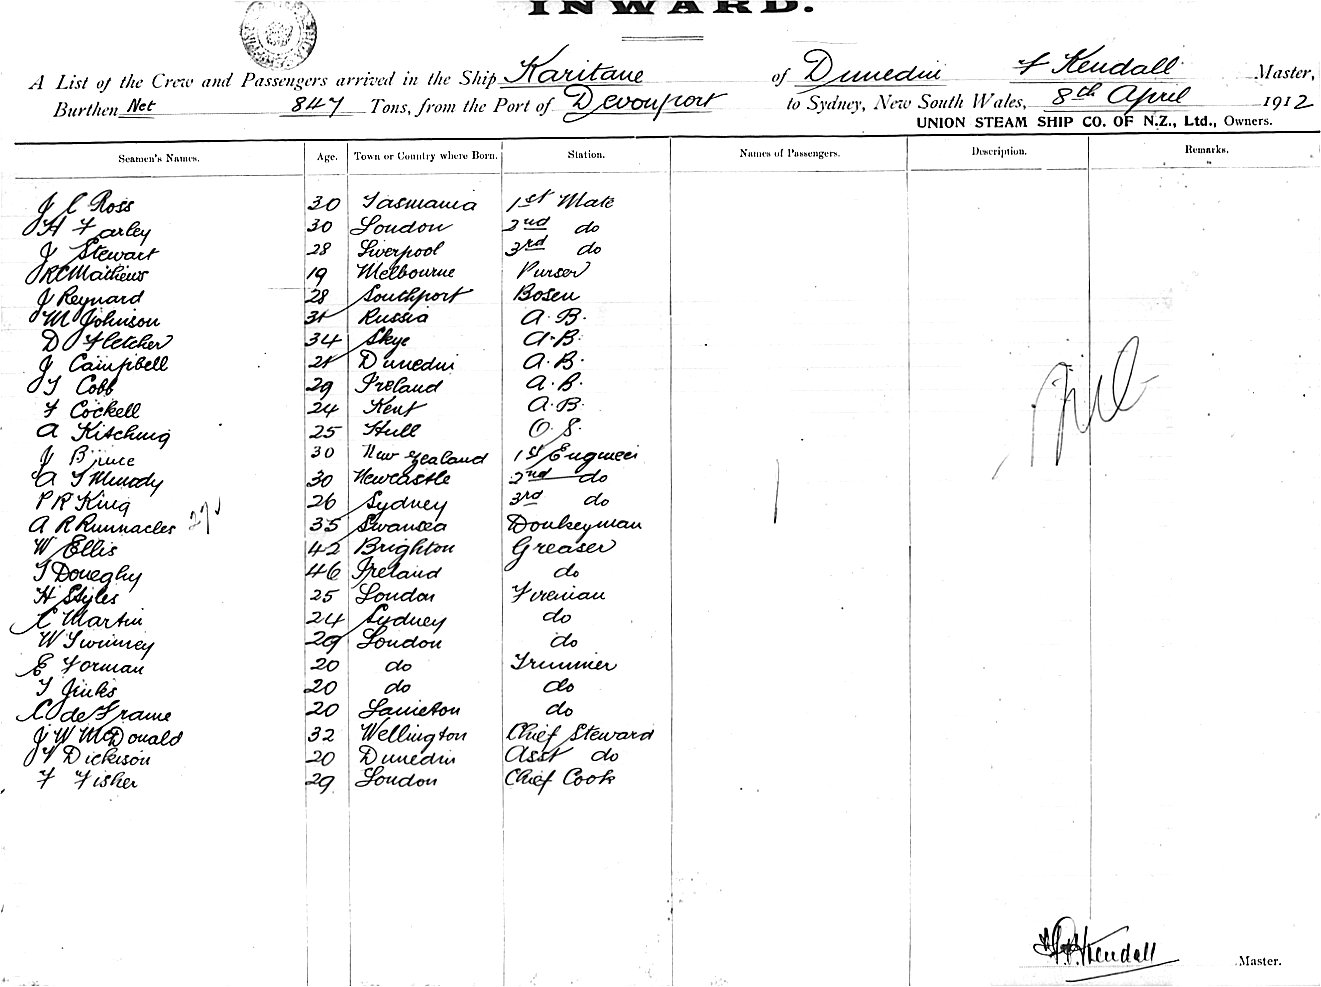 INWARD.
A List of the Crew and Passengers arrived in the Ship Karitane of Dunedin F Kendall Master,
Burthen Net 847 Tons, from the Port of Devonport to Sydney, New South Wales, 8th April 1912
UNION STEAM SHIP CO. OF N.Z., Ltd., Owners.
Seamen's Names. Age. Town or Country where Born. Station. Names of Passengers. Description. Remarks.
J C Ross 30 Tasmania 1st Mate
H Farley 30 London 2nd do
J Stewart 28 Liverpool 3rd do
Mathews 19 Melbourne Purser
J Reynard 28 Southport Bosen
M Johnson 31 Russia A.B.
D Fletcher 34 Skye A.B.
J Campbell 21 Dunedin A.B.
T Cobb 29 Ireland A.B.
F Cockell 24 Kent A.B.
A Kitching 25 Hull O.S.
J Bruce 30 New Zealand 1st Engineer
A T Mundy 30 Newcastle 2nd do
P R King 26 Sydney 3rd do
A R Runnacles 35 Swansea Donkeyman
W Ellis 42 Brighton Greaser
T Doneghy 46 Ireland do
H Styles 25 London Fireman
C Martin 24 Sydney do
W Swinney 29 London do
E Forman 20 do Trimmer
T Jinks 20 do do
C de Frame 20 do
J W McDonald 32 Wellington Chief Steward
Dickison 20 Dunedin Asst do
F Fisher 29 London Chief Cook
27
Kendall Master.